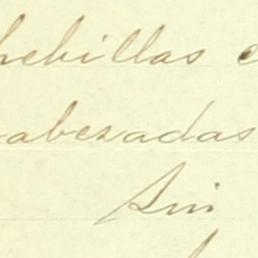 hebillas
abezadas
Sin